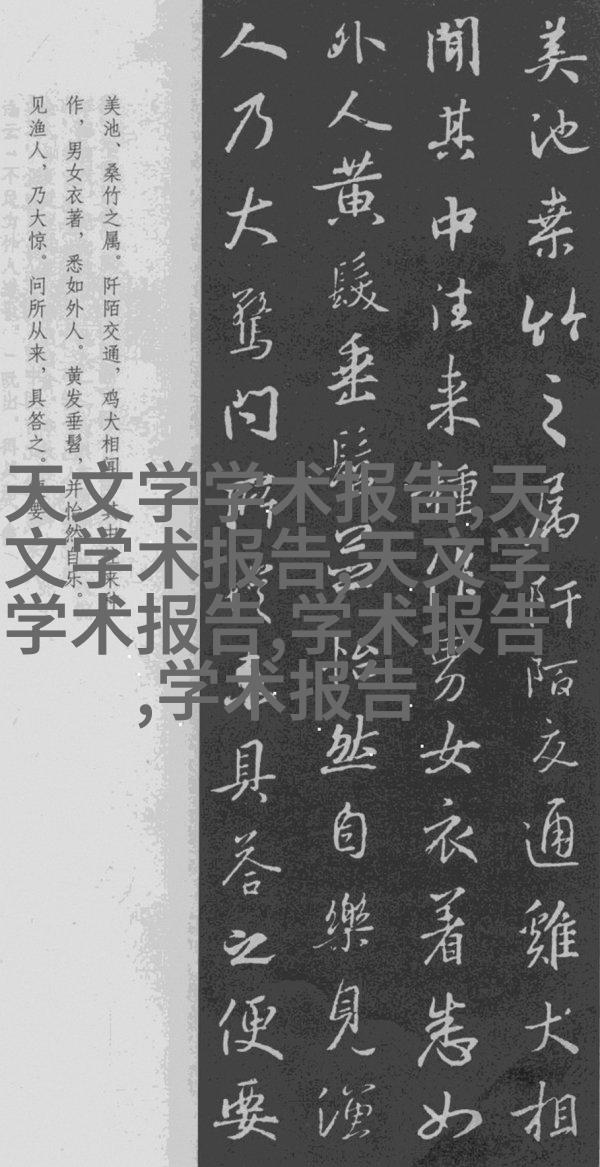 美池桒竹之属阡陌交通雞犬相
聞其中往来種作男女衣着悉如
外人黄髮垂髫並怡然自樂見漁
人乃大驚问所從来具答之便要
美池、桑竹之属。阡陌交通，鸡犬相闻。其中往来种
作，男女衣著，悉如外人。黄发垂髫，并怡然自乐。
见渔人，乃大惊。问所从来，具答之。便要
天文学学术报告,天
文学术报告,天文学
学术报告,学术报告
,学术报告